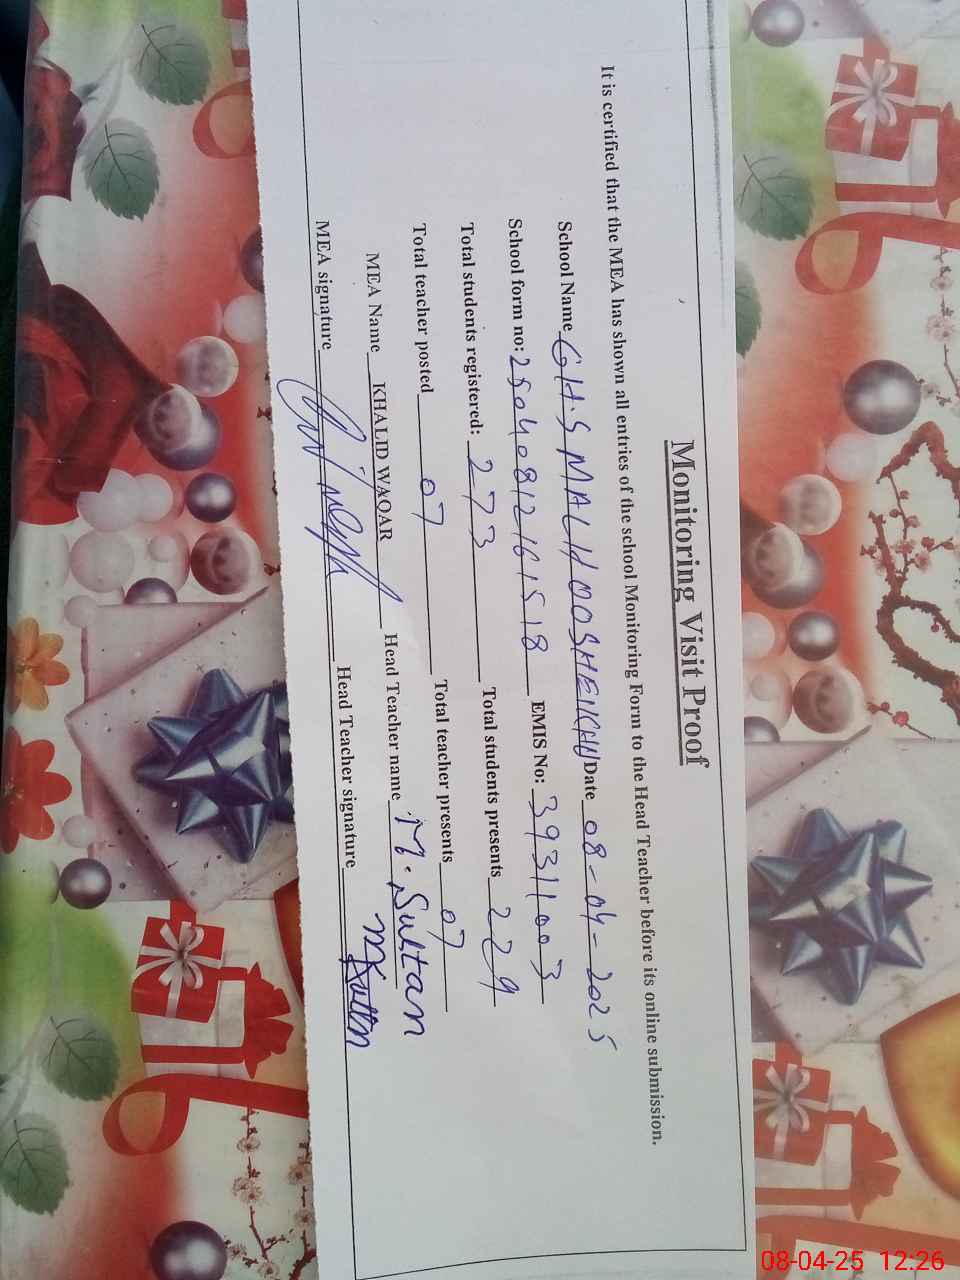 Monitoring Visit Proof
It is certified that the MEA has shown all entries of the school Monitoring Form to the Head Teacher before its online submission.
School Name G.H.S MALHOOSHEIKHU Date 08-04-2025
School form no: 25040812161518 EMIS No: 39311003
Total students registered: 273 Total students presents 229
Total teacher posted 07 Total teacher presents 07
MEA Name KHALID WAQAR Head Teacher name M. Sultan
MEA signature Head Teacher signature MSultan
08-04-25 12:26